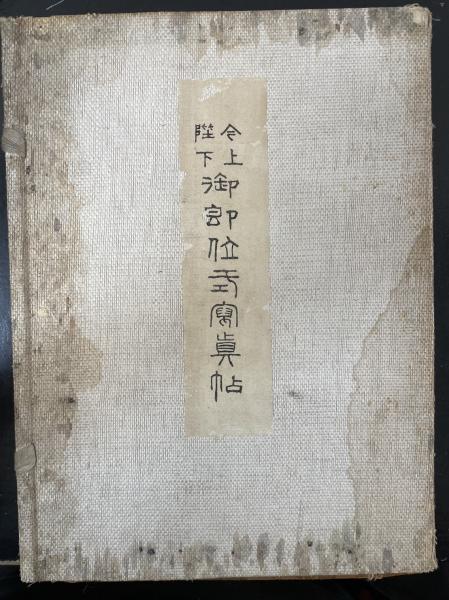 今上
陛下
御即位式寫眞帖